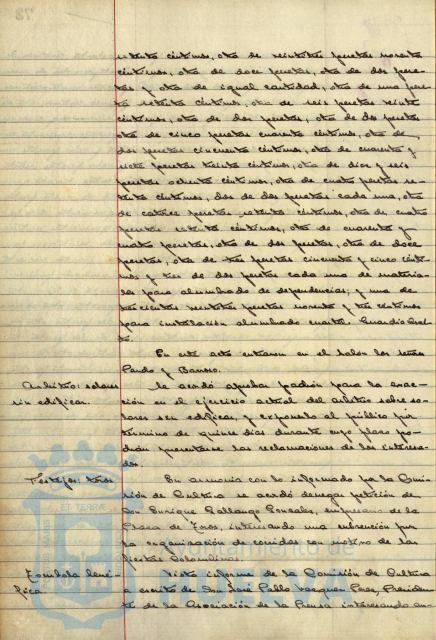 setenta céntimos, otra de veintitrés pesetas noventa
céntimos, otra de doce pesetas, otra de dos pese-
tas y otra de igual cantidad, otra de una pese-
ta setenta céntimos, otra de seis pesetas veinte
céntimos, otra de dos pesetas, otra de dos pesetas
otra de cinco pesetas cuarenta céntimos, otra de
dos pesetas cincuenta céntimos, otra de cuarenta y
siete pesetas treinta céntimos, otra de diez y seis
pesetas ochenta céntimos, otra de cuatro pesetas se-
tenta céntimos, dos de dos pesetas cada una, otra
de catorce pesetas setenta céntimos, otra de cuatro
pesetas setenta céntimos, otra de cuarenta y
cuatro pesetas, otra de dos pesetas, otra de doce
pesetas, otra de tres pesetas cincuenta y cinco cénti-
mos y tres de dos pesetas cada una de materia-
les para alumbrado de dependencias; y una de
pesetas noventa y tres céntimos
para instalación alumbrado cuartel Guardia Civil
En este acto entraron en el salón los señores
Pardo y Barroso.
Arbitrio: solares
sin edificar.
Se acordó aprobar padrón para la exac-
ción en el ejercicio actual del arbitrio sobre so-
lares sin edificar, y exponerlo al público por
término de quince días durante cuyo plazo po-
drán presentarse las reclamaciones de los interesa-
dos.
Festejos: toros
En armonía con lo informado por la Comi-
sión de Cultura se acordó denegar petición de
don Enrique Gallango González, empresario de la
Plaza de Toros, interesando una subvención por
la organización de corridas con motivo de las
Fiestas Colombinas.
Tómbola bené-
fica.
Visto informe de la Comisión de Cultura
a escrito de don José Pablo Vázquez Pérez, Presiden-
te de la Asociación de la Prensa interesando au-
Ayuntamiento de